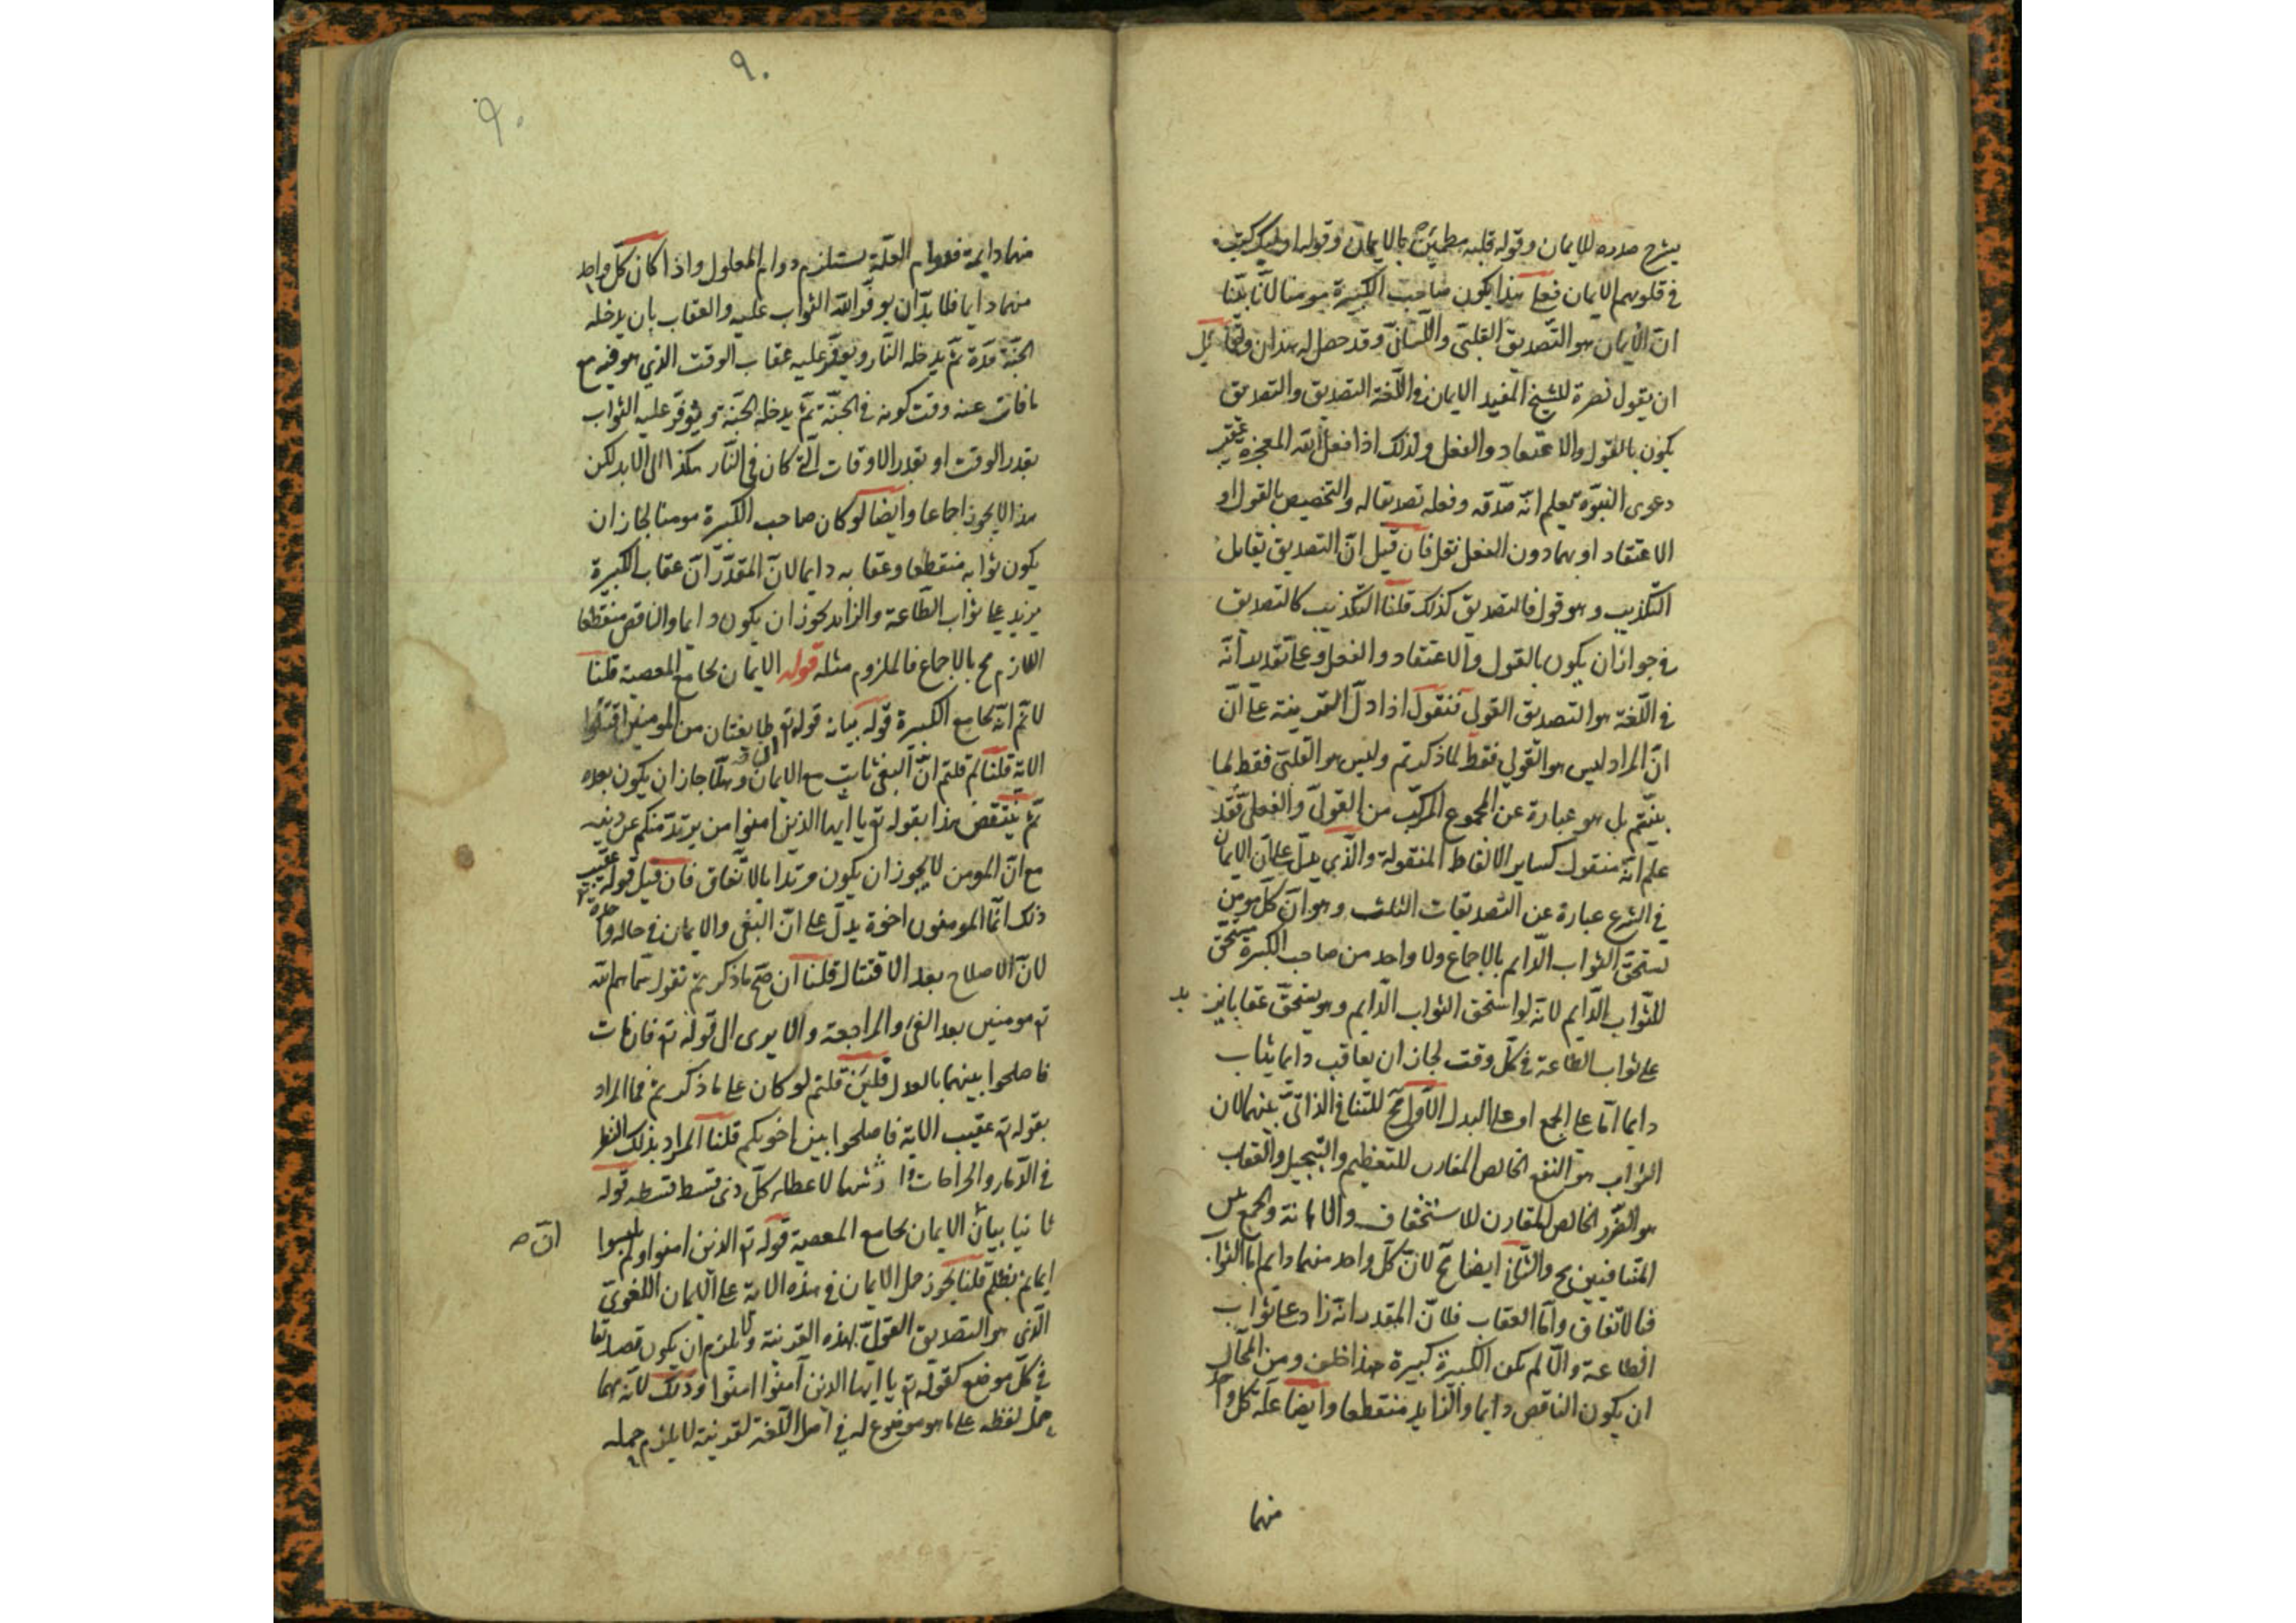 يشرح صدره للايمان وقوله قلبه مطمئن بالايمان وقوله اولئك كتب
في قلوبهم الايمان فعلى هذا يكون صاحب الكبيرة مومنا لانا بيّنا
ان الايمان هو التصديق القلبي واللساني وقد حصل له هذان ولقائل
ان يقول نصرة للشيخ المفيد الايمان في اللغة التصديق والتصديق
يكون بالقول والاعتقاد والفعل ولذلك اذا فعل الله المعجزة عقيب
دعوى النبوة يعلم انه صدقه وفعله تصديقا له والتخصيص بالقول او
الاعتقاد او بهما دون الفعل نقل فان قيل انّ التصديق يقابل
التكذيب وهو قول فالتصديق كذلك قلنا التكذيب كالتصديق
في جواز ان يكون بالقول والاعتقاد والفعل وعلى تقدير انه
في اللغة هو التصديق القولي فنقول اذا دلّ القرينة على انّ
انّ المراد ليس هو القولي فقط لما ذكرتم وليس هو القلبي فقط لما
بيّنتم بل هو عبارة عن المجموع المركب من القولي والفعلي فقد
علم انه منقول كساير الالفاظ المنقولة والذي يدلّ على ان الايمان
في الشرع عبارة عن التصديقات الثلث وهو انّ كل مومن
يستحق الثواب الدايم بالاجماع ولا واحد من صاحب الكبيرة مستحق
للثواب الدايم لانه لو استحق الثواب الدايم وهو يستحق عقابا يز يد
على ثواب الطاعة في كل وقت لجاز ان يعاقب دايما يثاب
دايما امّا على الجمع او على البدل الاول مح للتنافي الذاتي بينهما لان
الثواب هو النفع الخالص المقارن للتعظيم والتبجيل والعقاب
هو الضرر الخالص المقارن للاستخفاف والاهانة والجمع بين
المتنافيين مح والثاني ايضا مح لانّ كل واحد منهما دايم اما الثواب
فبالاتفاق وامّا العقاب فلانّ المقدر انه زاد على ثواب
الطاعة والّا لم يكن الكبيرة كبيرة هذا خلف ومن المحال
ان يكون الناقص دايما والزايد منقطعا وايضا علّة كل واحد
منهما
٩٠
٩٠
منهما دايمة فدوام العلّة يستلزم دوام المعلول واذا كان كل واحد
منهما دايما فلا بدّ ان يوفّر الله الثواب عليه والعقاب بان يدخله
الجنّة مدة ثمّ يدخله النار ويوفّر عليه عقاب الوقت الذي هو فيه مع
ما فات عنه وقت كونه في الجنّة ثمّ يدخله الجنّة ويوفّر عليه الثواب
بقدر الوقت او بقدر الاوقات التي كان في النار هكذا الى الابد لكن
هذا لا يجوز اجماعا وايضا لو كان صاحب الكبيرة مومنا لجاز ان
يكون ثوابه منقطعا وعقابه دايما لانّ المقدّر انّ عقاب الكبيرة
يزيد على ثواب الطاعة والزايد يجوز ان يكون دايما والناقص منقطعا
اللازم مح بالاجماع فالملزوم مثله قوله الايمان يجامع المعصية قلنا
لا نم انّه يجامع الكبيرة قوله بيانه قوله تع وان طايفتان من المومنين اقتتلوا
الاية قلنا لم قلتم انّ البغي ثابت مع الايمان وهلّا جاز ان يكون بعده
ثمّ ينتقض هذا بقوله تع يا ايها الذين امنوا من يرتدّ منكم عن دينه
مع انّ المومن لا يجوز ان يكون مرتدا بالاتّفاق فان قيل قوله عقيب
ذلك انّما المومنون اخوة يدلّ على انّ البغي والايمان في حالة واحدة
لانّ الاصلاح بعد الاقتتال قلنا ان صحّ ما ذكرتم نقول سمّاهم الله
تع مومنين بعد الفئ والمراجعة والا يرى الى قوله تع فان فاءت
فاصلحوا بينهما بالعدل فلئن قلتم لو كان على ما ذكرتم فما المراد
بقوله تع عقيب الاية فاصلحوا بين اخويكم قلنا المراد بذلك النظر
في الدّماء والجراحات لاعطاء كلّ ذي قسط قسطه قوله
ثانيا بيان انّ الايمان يجامع المعصية قوله تع الذين امنوا ولم يلبسوا
انّ صه
ايمانهم بظلم قلنا يجوز حمل الايمان في هذه الاية على الايمان اللغوي
الّذي هو التصديق القولي لهذه القرينة ولا يلزم ان يكون تصديقا
في كلّ موضع كقوله تع يا ايها الذين آمنوا امنوا وذلك لانّه مهما
حمل لفظه على ما هو موضوع له في اصل اللّغة لقرينة لا يلزم حمله